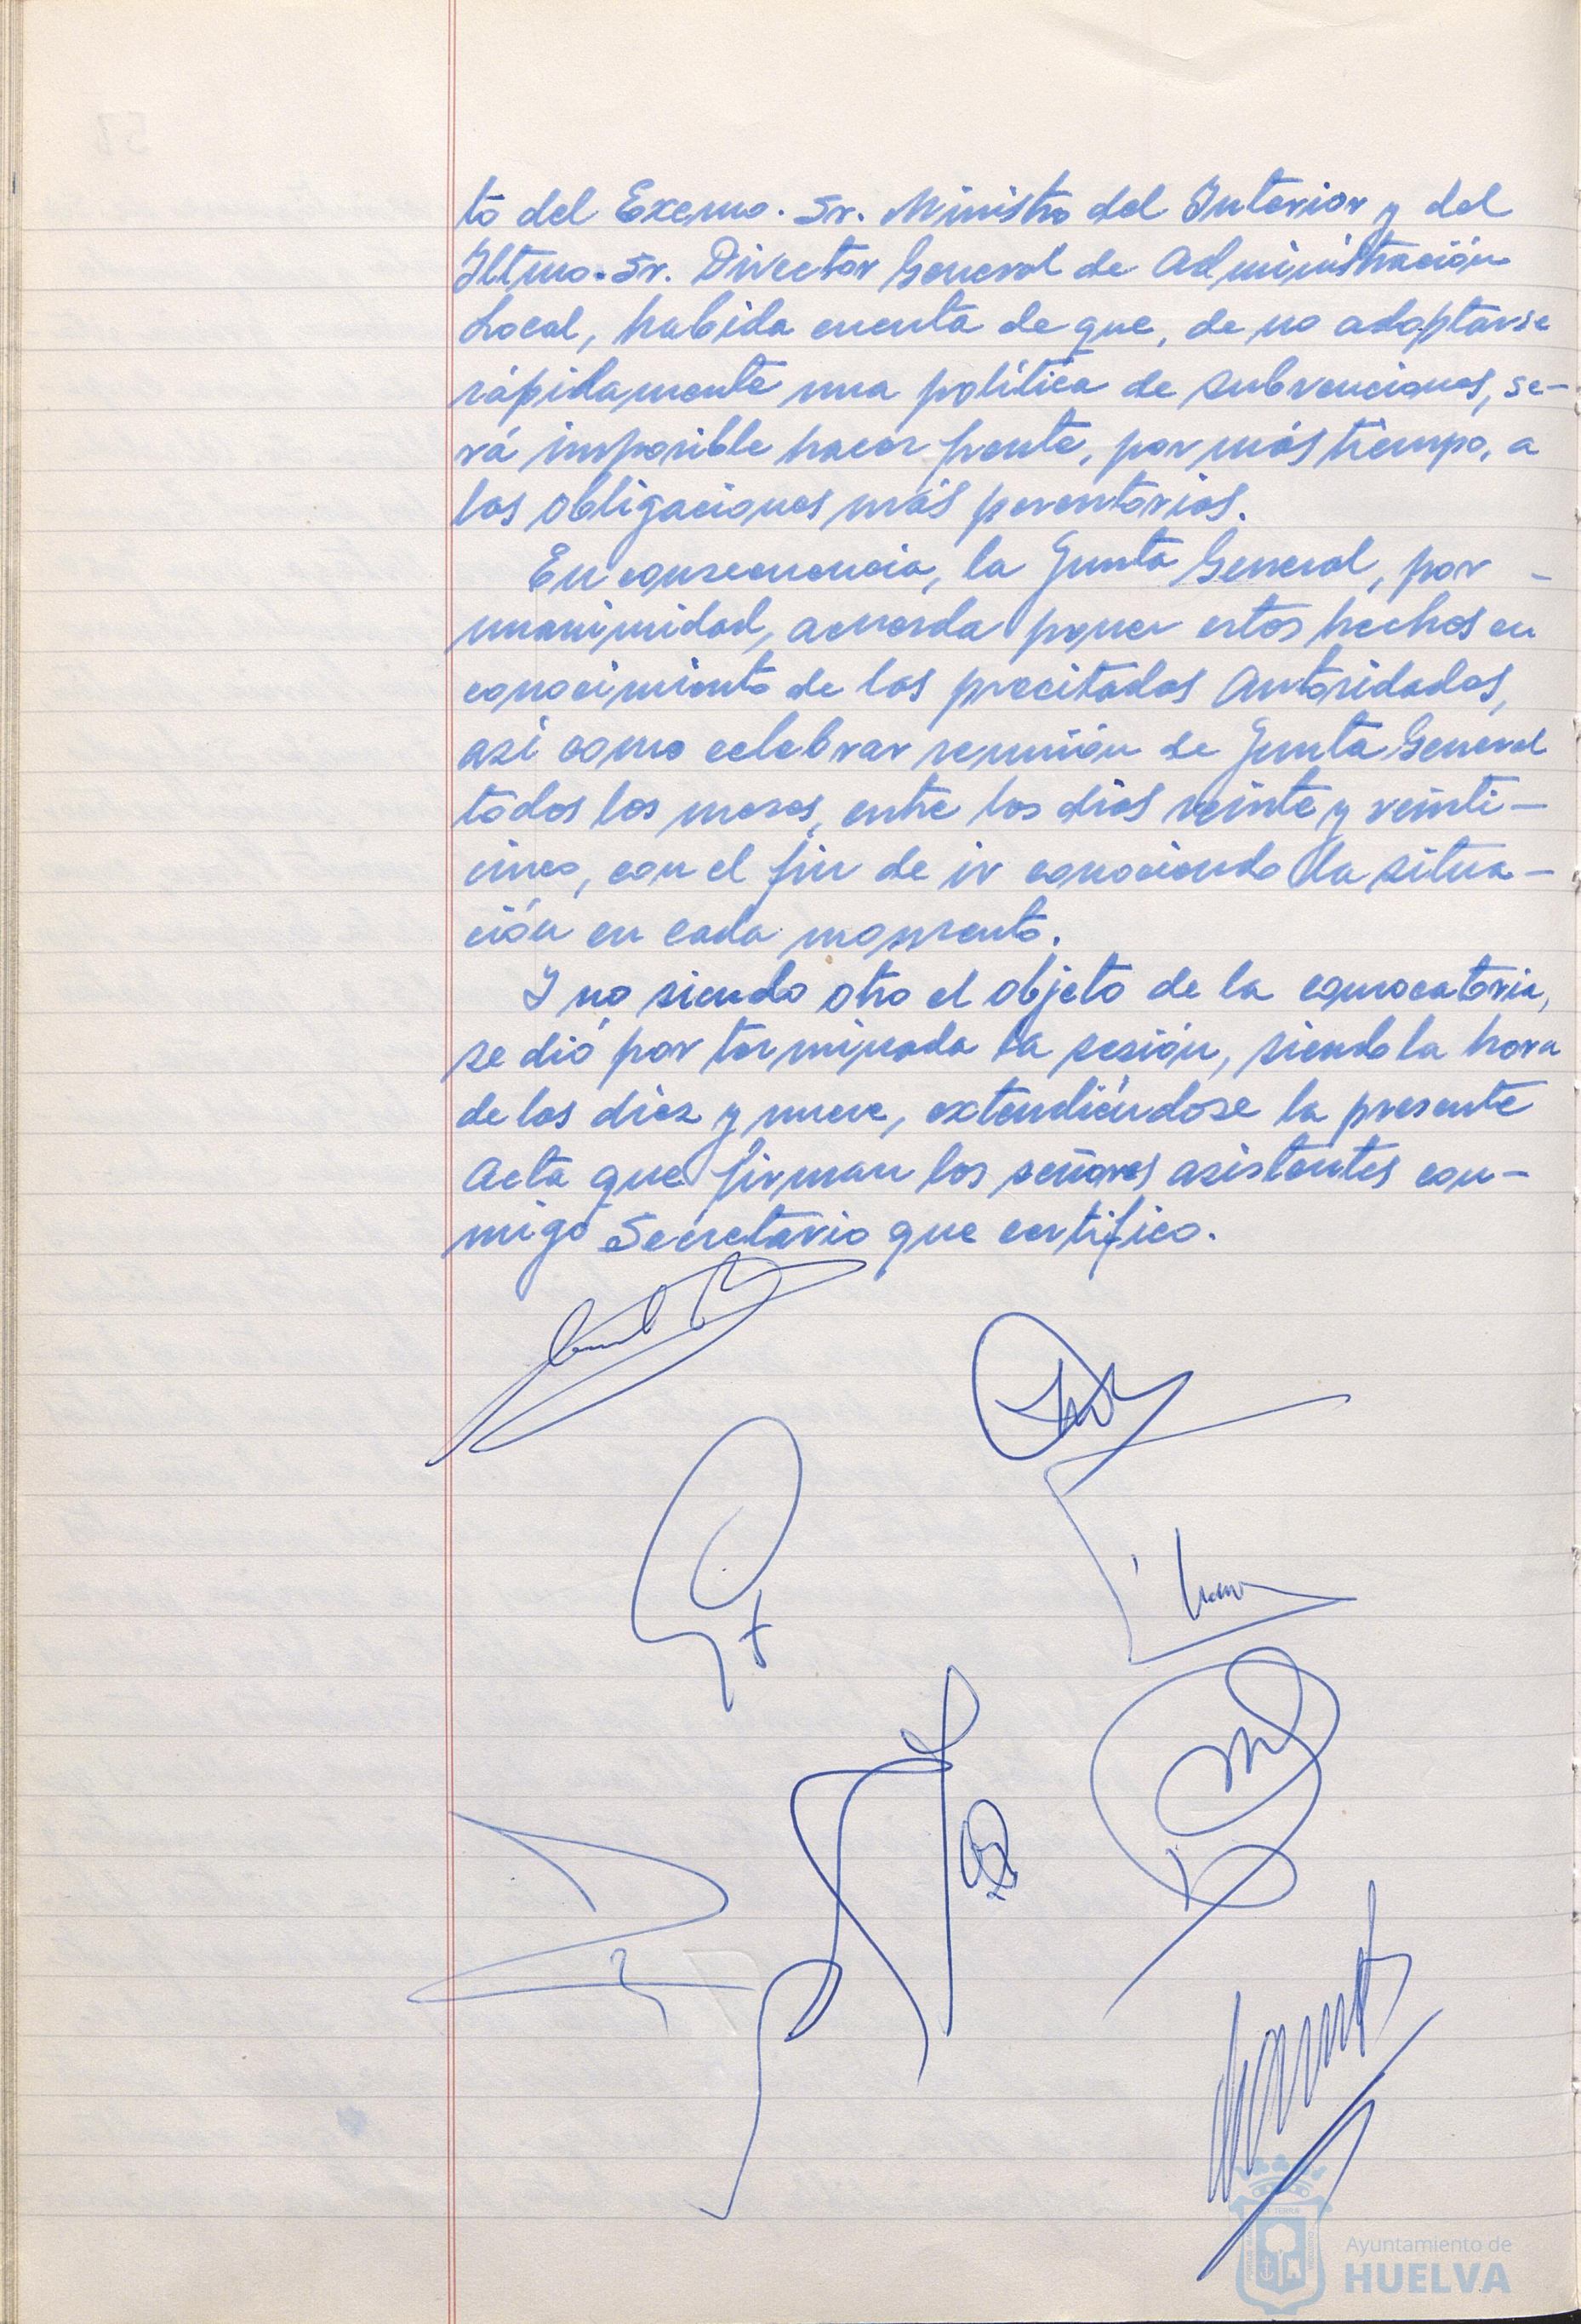 to del Excmo. Sr. Ministro del Interior y del
Iltmo. Sr. Director General de Administración
Local, habida cuenta de que, de no adoptarse
rápidamente una política de subvenciones, se-
rá imposible hacer frente, por más tiempo, a
las obligaciones más perentorias.
En consecuencia, la Junta General, por -
unanimidad, acuerda poner estos hechos en
conocimiento de las precitadas Autoridades,
así como celebrar reunión de Junta General
todos los meses, entre los días veinte y veinti-
cinco, con el fin de ir conociendo la situa-
ción en cada momento.
Y no siendo otro el objeto de la convocatoria,
se dió por terminada la sesión, siendo la hora
de las diez y nueve, extendiéndose la presente
Acta que firman los señores asistentes con-
migo Secretario que certifico.
Ayuntamiento de
HUELVA